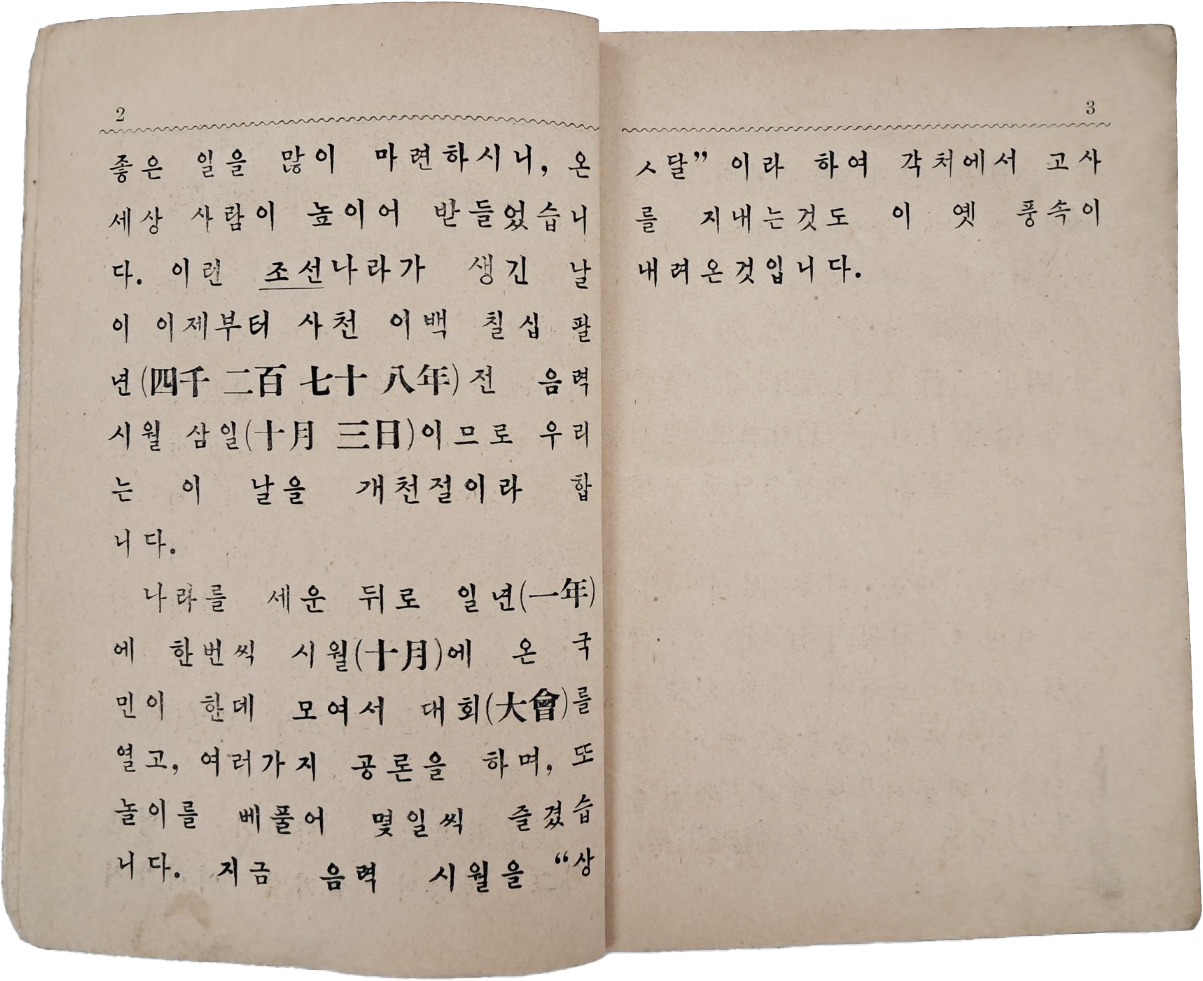 2
좋은 일을 많이 마련하시니, 온
세상 사람이 높이어 받들었습니
다. 이런 조선나라가 생긴 날
이 이제부터 사천 이백 칠십 팔
년(四千 二百 七十 八年) 전 음력
시월 삼일(十月 三日)이므로 우리
는 이 날을 개천절이라 합
니다.
나라를 세운 뒤로 일년(一年)
에 한번씩 시월(十月)에 온 국
민이 한데 모여서 대회(大會)를
열고, 여러가지 공론을 하며, 또
놀이를 베풀어 몇일씩 즐겼습
니다. 지금 음력 시월을 “상
3
ㅅ달” 이라 하여 각처에서 고사
를 지내는것도 이 옛 풍속이
내려온것입니다.